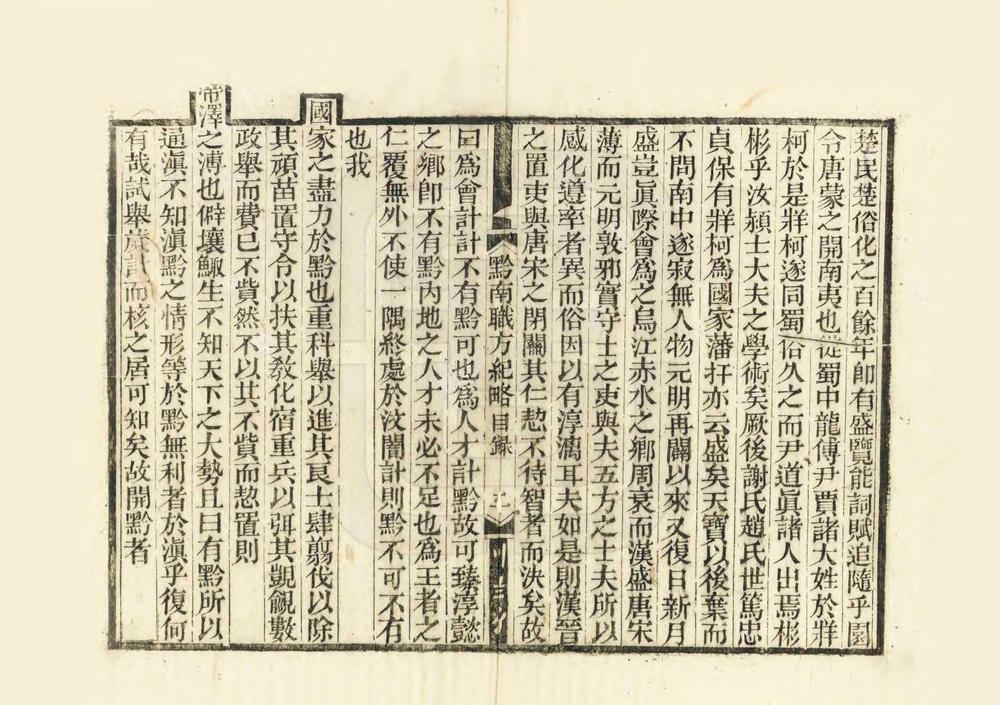 楚民楚俗化之百餘年卽有盛覽能詞賦追隨乎園
令唐蒙之開南夷也從蜀中龍傅尹賈諸大姓於牂
柯於是牂柯遂同蜀俗久之而尹道眞諸人出焉彬
彬乎汝潁士大夫之學術矣厥後謝氏趙氏世篤忠
貞保有牂柯爲國家藩扞亦云盛矣天寶以後棄而
不問南中遂寂無人物元明再闢以來又復日新月
盛豈眞際會爲之烏江赤水之鄉周衰而漢盛唐宋
薄而元明敦邪實守土之吏與夫五方之士夫所以
感化導率者異而俗因以有淳漓耳夫如是則漢晉
之置吏與唐宋之閉關其仁恝不待智者而決矣故
黔南職方紀略目録
曰爲會計計不有黔可也爲人才計黔故可臻淳懿
之鄉卽不有黔內地之人才未必不足也爲王者之
仁覆無外不使一隅終處於汶闇計則黔不可不有
也我
國家之盡力於黔也重科舉以進其良士肆翦伐以除
其頑苗置守令以扶其敎化宿重兵以弭其覬覦數
政舉而費已不貲然不以其不貲而恝置則
帝澤之溥也僻壤鯫生不知天下之大勢且曰有黔所以
逼滇不知滇黔之情形等於黔無利者於滇乎復何
有哉試舉歲計而核之居可知矣故開黔者